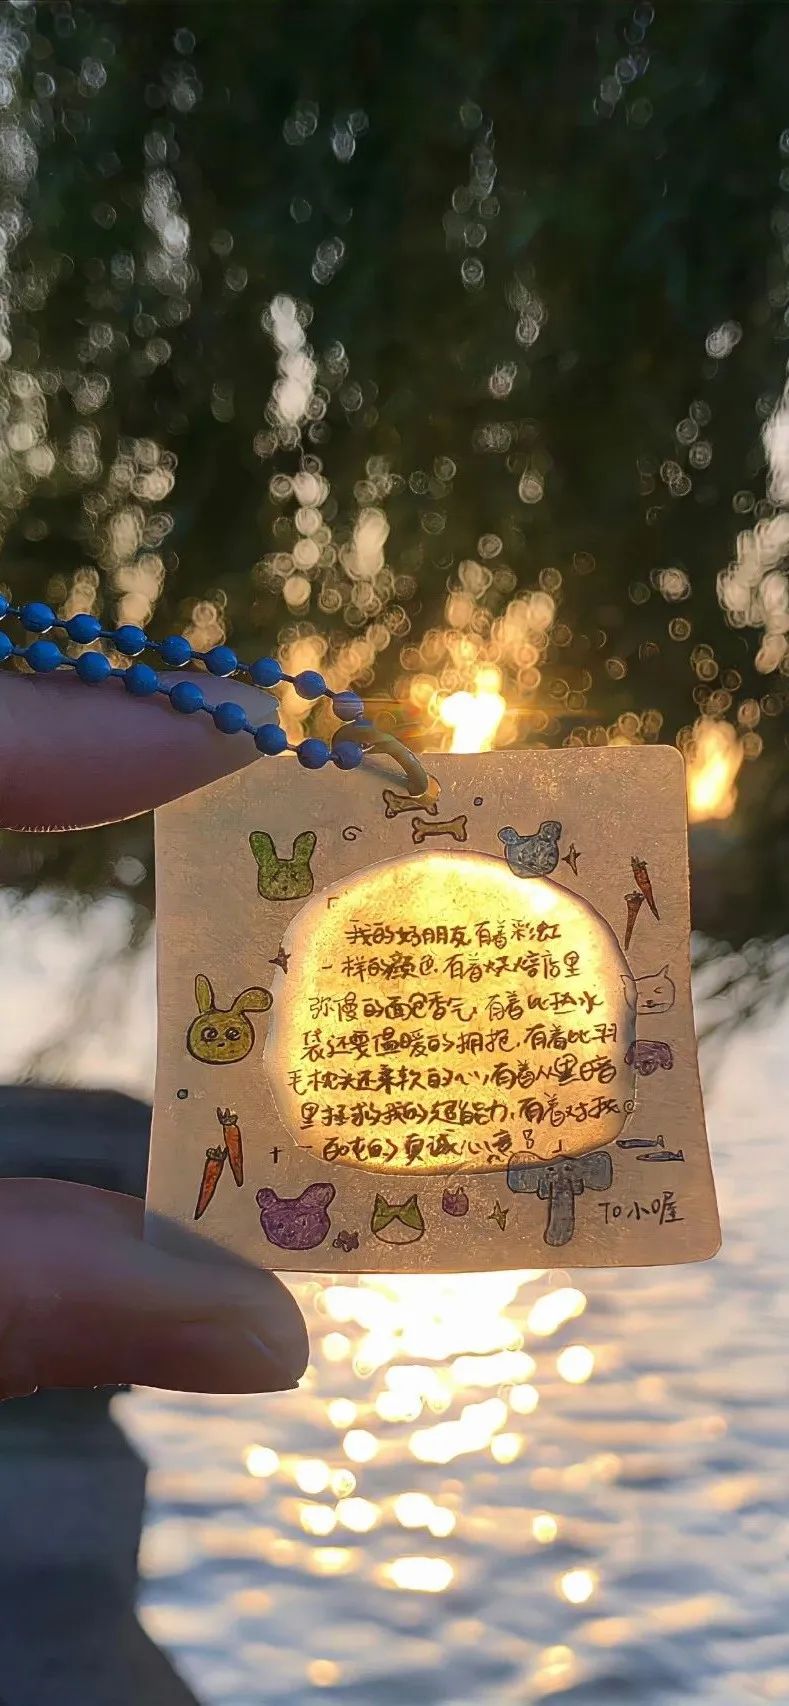 「
我的好朋友有着彩虹
一样的颜色,有着烘焙店里
弥漫的面包香气,有着比热水
袋还要温暖的拥抱,有着比羽
毛枕头还柔软的心,有着从黑暗
里拯救我的超能力,有着对我
一百吨的真诚心意
」
TO小喔